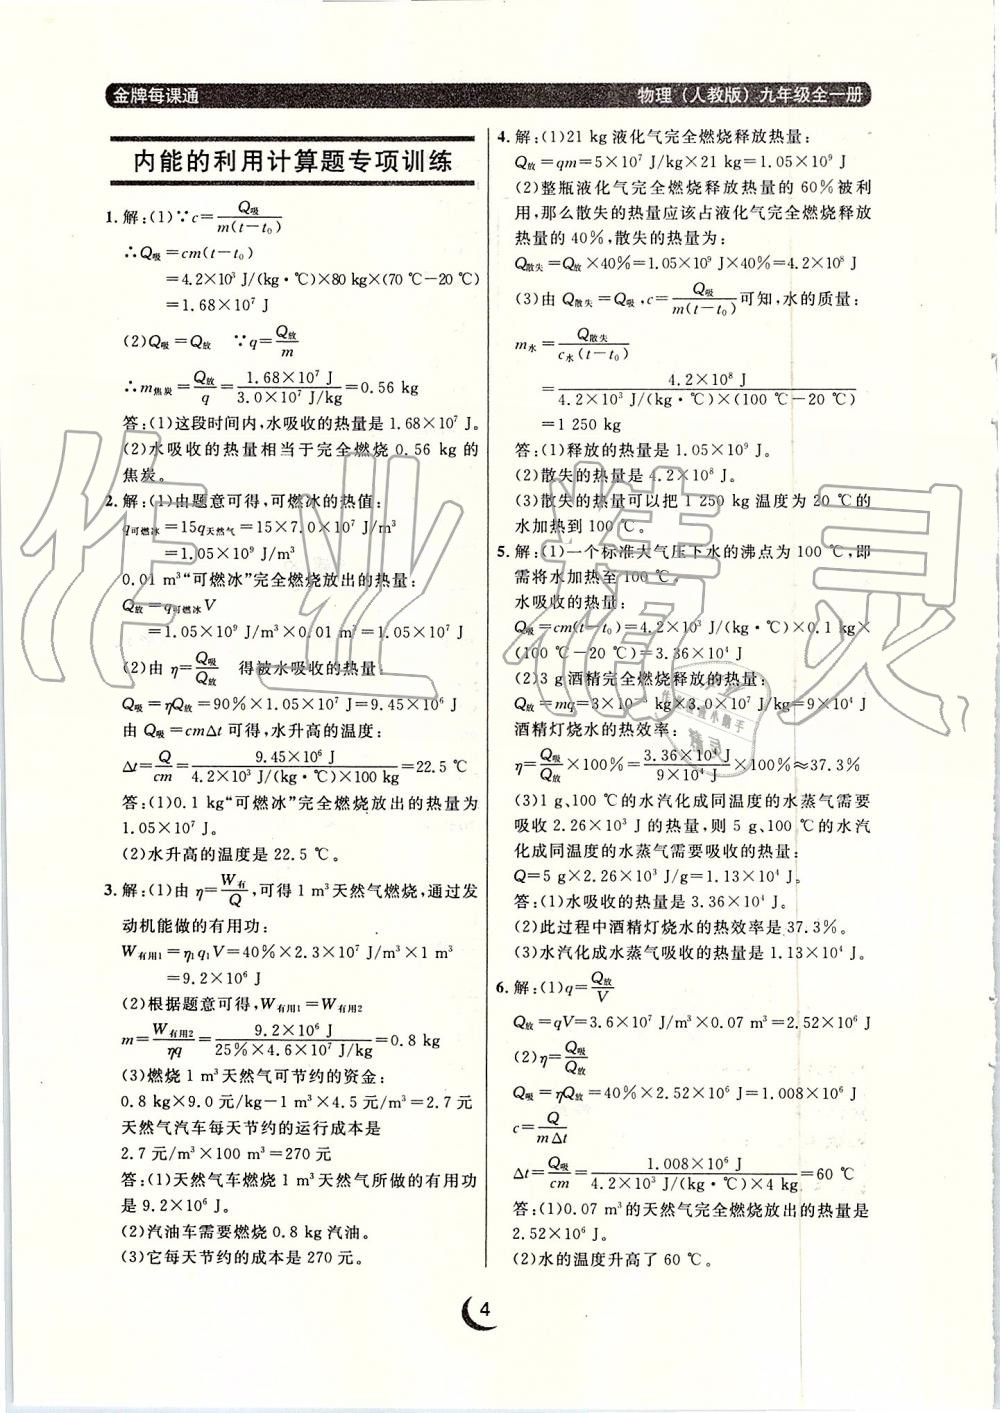 金牌每课通
物理（人教版）九年级全一册
内能的利用计算题专项训练
1. 解:(1)∵c=Q吸/m(t－t₀)
∴Q吸=cm(t－t₀)
=4.2×10³ J/(kg·℃)×80 kg×(70 ℃－20 ℃)
=1.68×10⁷ J
(2)Q吸=Q放 ∵q=Q放/m
∴m焦炭=Q放/q=1.68×10⁷ J/3.0×10⁷ J/kg=0.56 kg
答:(1)这段时间内,水吸收的热量是 1.68×10⁷ J。
(2)水吸收的热量相当于完全燃烧 0.56 kg 的
焦炭。
2. 解:(1)由题意可得,可燃冰的热值:
q可燃冰=15q天然气=15×7.0×10⁷ J/m³
=1.05×10⁹ J/m³
0.01 m³“可燃冰”完全燃烧放出的热量:
Q放=q可燃冰V
=1.05×10⁹ J/m³×0.01 m³=1.05×10⁷ J
(2)由 η=Q吸/Q放 得被水吸收的热量:
Q吸=ηQ放=90%×1.05×10⁷ J=9.45×10⁶ J
由 Q吸=cmΔt 可得,水升高的温度:
Δt=Q/cm=9.45×10⁶ J/4.2×10³ J/(kg·℃)×100 kg=22.5 ℃
答:(1)0.1 kg“可燃冰”完全燃烧放出的热量为
1.05×10⁷ J。
(2)水升高的温度是 22.5 ℃。
3. 解:(1)由 η=W有/Q,可得 1 m³天然气燃烧,通过发
动机能做的有用功:
W有用1=η₁q₁V=40%×2.3×10⁷ J/m³×1 m³
=9.2×10⁶ J
(2)根据题意可得,W有用1=W有用2
m=W有用2/ηq=9.2×10⁶ J/25%×4.6×10⁷ J/kg=0.8 kg
(3)燃烧 1 m³天然气可节约的资金:
0.8 kg×9.0 元/kg－1 m³×4.5 元/m³=2.7 元
天然气汽车每天节约的运行成本是
2.7 元/m³×100 m³=270 元
答:(1)天然气车燃烧 1 m³天然气所做的有用功
是 9.2×10⁶ J。
(2)汽油车需要燃烧 0.8 kg 汽油。
(3)它每天节约的成本是 270 元。
4. 解:(1)21 kg 液化气完全燃烧释放热量:
Q放=qm=5×10⁷ J/kg×21 kg=1.05×10⁹ J
(2)整瓶液化气完全燃烧释放热量的 60%被利
用,那么散失的热量应该占液化气完全燃烧释放
热量的 40%,散失的热量为:
Q散失=Q放×40%=1.05×10⁹ J×40%=4.2×10⁸ J
(3)由 Q散失=Q吸,c=Q吸/m(t－t₀)可知,水的质量:
m水=Q散失/c水(t－t₀)
=4.2×10⁸ J/4.2×10³ J/(kg·℃)×(100 ℃－20 ℃)
=1 250 kg
答:(1)释放的热量是 1.05×10⁹ J。
(2)散失的热量是 4.2×10⁸ J。
(3)散失的热量可以把 1 250 kg 温度为 20 ℃的
水加热到 100 ℃。
5. 解:(1)一个标准大气压下水的沸点为 100 ℃,即
需将水加热至 100 ℃。
水吸收的热量:
Q吸=cm(t－t₀)=4.2×10³ J/(kg·℃)×0.1 kg×
(100 ℃－20 ℃)=3.36×10⁴ J
(2)3 g 酒精完全燃烧释放的热量:
Q放=mq=3×10⁻³ kg×3.0×10⁷ J/kg=9×10⁴ J
酒精灯烧水的热效率:
η=Q吸/Q放×100%=3.36×10⁴ J/9×10⁴ J×100%≈37.3%
(3)1 g、100 ℃的水汽化成同温度的水蒸气需要
吸收 2.26×10³ J 的热量,则 5 g、100 ℃的水汽
化成同温度的水蒸气需要吸收的热量:
Q=5 g×2.26×10³ J/g=1.13×10⁴ J。
答:(1)水吸收的热量是 3.36×10⁴ J。
(2)此过程中酒精灯烧水的热效率是 37.3%。
(3)水汽化成水蒸气吸收的热量是 1.13×10⁴ J。
6. 解:(1)q=Q放/V
Q放=qV=3.6×10⁷ J/m³×0.07 m³=2.52×10⁶ J
(2)η=Q吸/Q放
Q吸=ηQ放=40%×2.52×10⁶ J=1.008×10⁶ J
c=Q/mΔt
Δt=Q吸/cm=1.008×10⁶ J/4.2×10³ J/(kg·℃)×4 kg=60 ℃
答:(1)0.07 m³的天然气完全燃烧放出的热量是
2.52×10⁶ J。
(2)水的温度升高了 60 ℃。
4
作业精灵